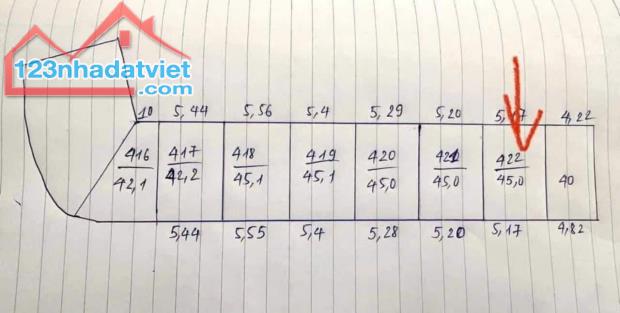 123nhadatviet.com
10 5,44 5,56 5,4 5,29 5,20 5,17 4,22
416 417 418 419 420 421 422
42,1 42,2 45,1 45,1 45,0 45,0 45,0 40
5,44 5,55 5,4 5,28 5,20 5,17 4,82